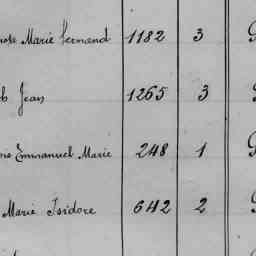 Marie Fernand 1182 3
Jean 1265 3
Emmanuel Marie 248 1
Marie Isidore 642 2